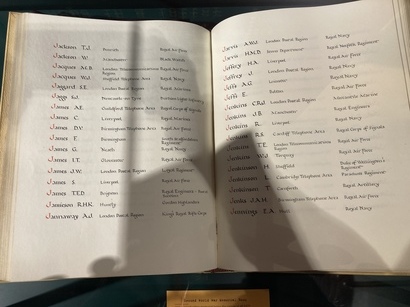 Jackson T.J. Penrith Royal Air Force
Jackson W. Manchester Black Watch
Jacques A.L.B. London Telecommunications Region Royal Air Force
Jacques W.J. Sheffield Telephone Area Royal Navy
Jaggard S.E. London Postal Region Royal Air Force
Jaggs Newcastle upon Tyne
James A.E. Guildford Telephone Area Royal Corps of Signals
James C. Liverpool Royal Marines
James D.V. Birmingham Telephone Area Royal Air Force
James F. Birmingham Telephone Area
James G. Neath Royal Navy
James I.T. Gloucester Royal Air Force
James J.W. London Postal Region
James S. Liverpool Royal Air Force
James T.E.D. Brighton Royal Engineers
Jamieson R.H.K. Huntly Gordon Highlanders
Jannaway A.J. London Postal Region King's Royal Rifle Corps
Jarvis A.W.J. London Postal Region Royal Navy
Jarvis H.N.D. Royal Norfolk Regiment
Jeffrey H.A. Liverpool Royal Navy
Jeffrey J. London Postal Region Royal Air Force
Jeffs A.G. Leicester Royal Navy
Jeffs E. Royal Air Force
Jenkins C.R.G. London Postal Region
Jenkins J.B. Manchester Royal Engineers
Jenkins R. Liverpool
Jenkins R.S. Cardiff Telephone Area Royal Corps of Signals
Jenkins T.E. London Telecommunications Region Royal Air Force
Jenkins W.J. Torquay Royal Air Force
Jenkinson H. Sheffield Duke of Wellington's Regiment
Jenkinson L. Cambridge Telephone Area Parachute Regiment
Jenkinson T. Royal Artillery
Jenks J.A.H. Birmingham Telephone Area Royal Air Force
Jennings E.A. Royal Navy